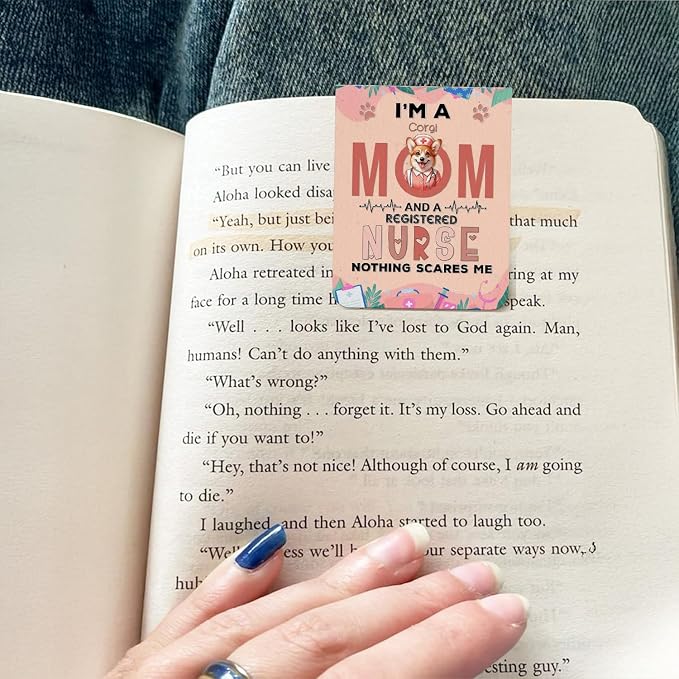 I'M A
Corgi
MOM
AND A
REGISTERED
NURSE
NOTHING SCARES ME
“But you can live
Aloha looked
“Yeah, but just that much
on its own. How you
Aloha retreated in ring at my
face for a long time speak.
“Well . . . looks like I’ve lost to God again. Man,
humans! Can’t do anything with them.”
“What’s wrong?”
“Oh, nothing . . . forget it. It’s my loss. Go ahead and
die if you want to!”
“Hey, that’s not nice! Although of course, I am going
to die.”
I laughed, and then Aloha started to laugh too.
“Well we’ll our separate ways now,
esting guy.”